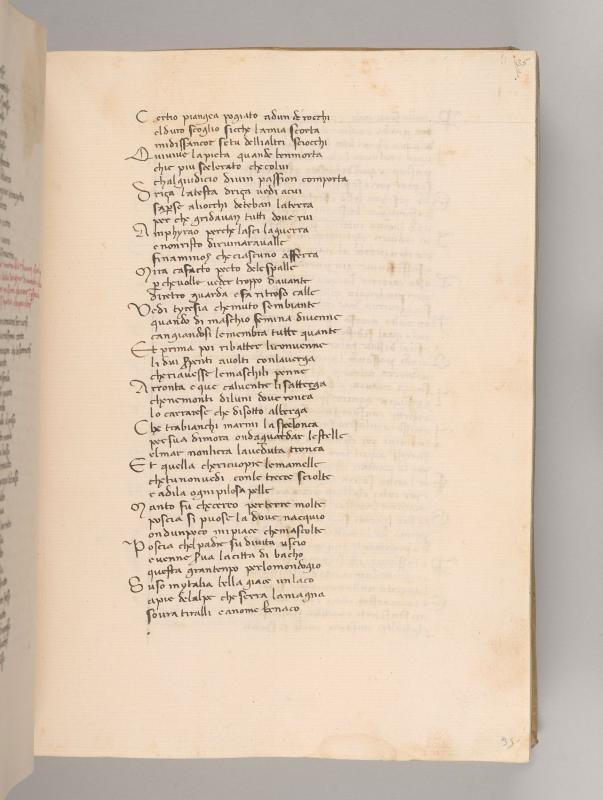 35
Certio piangea pogiato adun de rocchi
el duro scoglio sicche lamia scorta
midisse ancor se tu dellialtri sciocchi
Quivive lapieta quande benmorta
chie piu scelerato checolui
chalgiudicio divin passion comporta
Driça latesta driça vedi acui
saperse aliocchi deteban laterra
per che gridavan tutti dove rui
Amphyrao perche lasci laguerra
enonristo diruinaravalle
finaminos checiascuno afferra
Mira cafacto pecto delespalle
p chevolle veder troppo davante
diretro guarda efa ritroso calle
Vedi tyresia chemuto sembiante
quando di maschio femina divenne
cangiandosi lemembra tutte quante
Et prima poi ribatter liconvenne
li dui serpenti avolti conlaverga
cheriavesse lemaschili penne
Aronta e que calventre lisatterga
chenemonti diluni dove ronca
lo carrarese che disotto alberga
Che trabianchi marmi la spelonca
per sua dimora ondaguardar lestelle
elmar nonliera laveduta tronca
Et quella chericuopre lemamelle
chetunonvedi conle trecce sciolte
e adila ognipilosa pelle
Manto fu checerco perterre molte
poscia si puose la dove nacquio
ondunpoco mi piace chemascolte
Poscia chelpadre suo divita uscio
evenne serva lacitta di bacho
questa grantempo perlomondogio
Suso inytalia bella giace unlaco
apie delalpe che serra lamagna
sovra tiralli e anome benaco
35